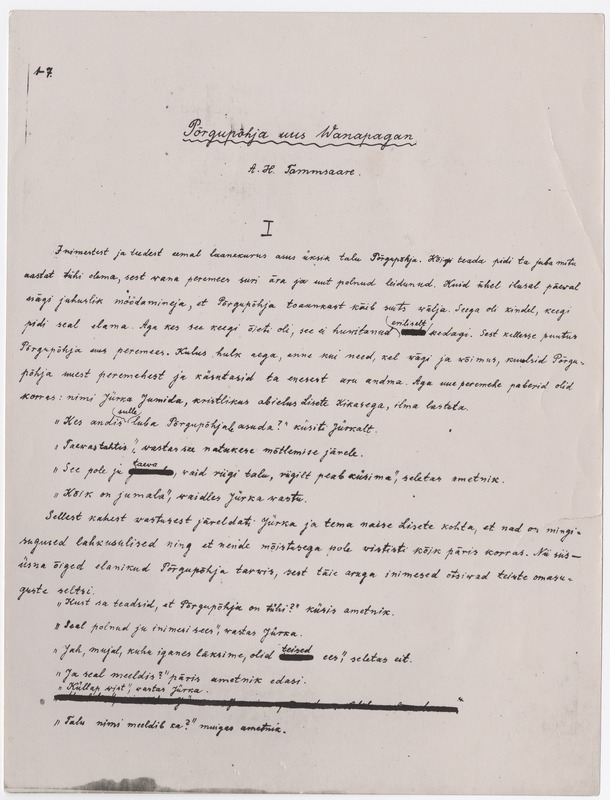 1-7.
Põrgupõhja uus Wanapagan
A. H. Tammsaare.
I
Inimestest ja teedest eemal laanekurus asus üksik talu Põrgupõhja. Kõigi teada pidi ta juba mitu
aastat tühi olema, sest wana peremees suri ära ja uut polnud leidunud. Kuid ühel ilusal päewal
nägi juhuslik möödamineja, et Põrgupõhja toaunkast käib suits wälja. Seega oli kindel, keegi
pidi seal elama. Aga kes see keegi õieti oli, see ei huwitanud eriliselt kedagi. Sest kellesse puutus
Põrgupõhja uus peremees. Kulus hulk aega, enne kui need, kel wägi ja wõimus, kuulsid Põrgu-
põhja uuest peremehest ja käsutasid ta enesest aru andma. Aga uue peremehe paberid olid
korras: nimi Jürka Jumida, kristlikus abielus Lisete Kikasega, ilma lasteta.
„Kes andis sulle luba Põrgupõhjal asuda?" küsiti Jürkalt.
„Taewas tahtis", wastas see natukese mõtlemise järele.
„See pole ju taewa, waid riigi talu, riigilt peab küsima", seletas ametnik.
„Kõik on jumala", waidles Jürka wastu.
Sellest kahest wastusest järeldati Jürka ja tema naise Lisete kohta, et nad on mingi-
sugused lahkusulised ning et nende mõistusega pole wististi kõik päris korras. Nii siis—
üsna õiged elanikud Põrgupõhja tarwis, sest täie aruga inimesed otsiwad teiste omasu-
guste seltsi.
„Kust sa teadsid, et Põrgupõhja on tühi?" küsis ametnik.
„Seal polnud ju inimesi sees", wastas Jürka.
„Jah, mujal, kuhu iganes läksime, olid teised ees", seletas eit.
„Ja seal meeldis?" päris ametnik edasi.
„Küllap wist", wastas Jürka.
„Talu nimi meeldib ka?" muigas ametnik.